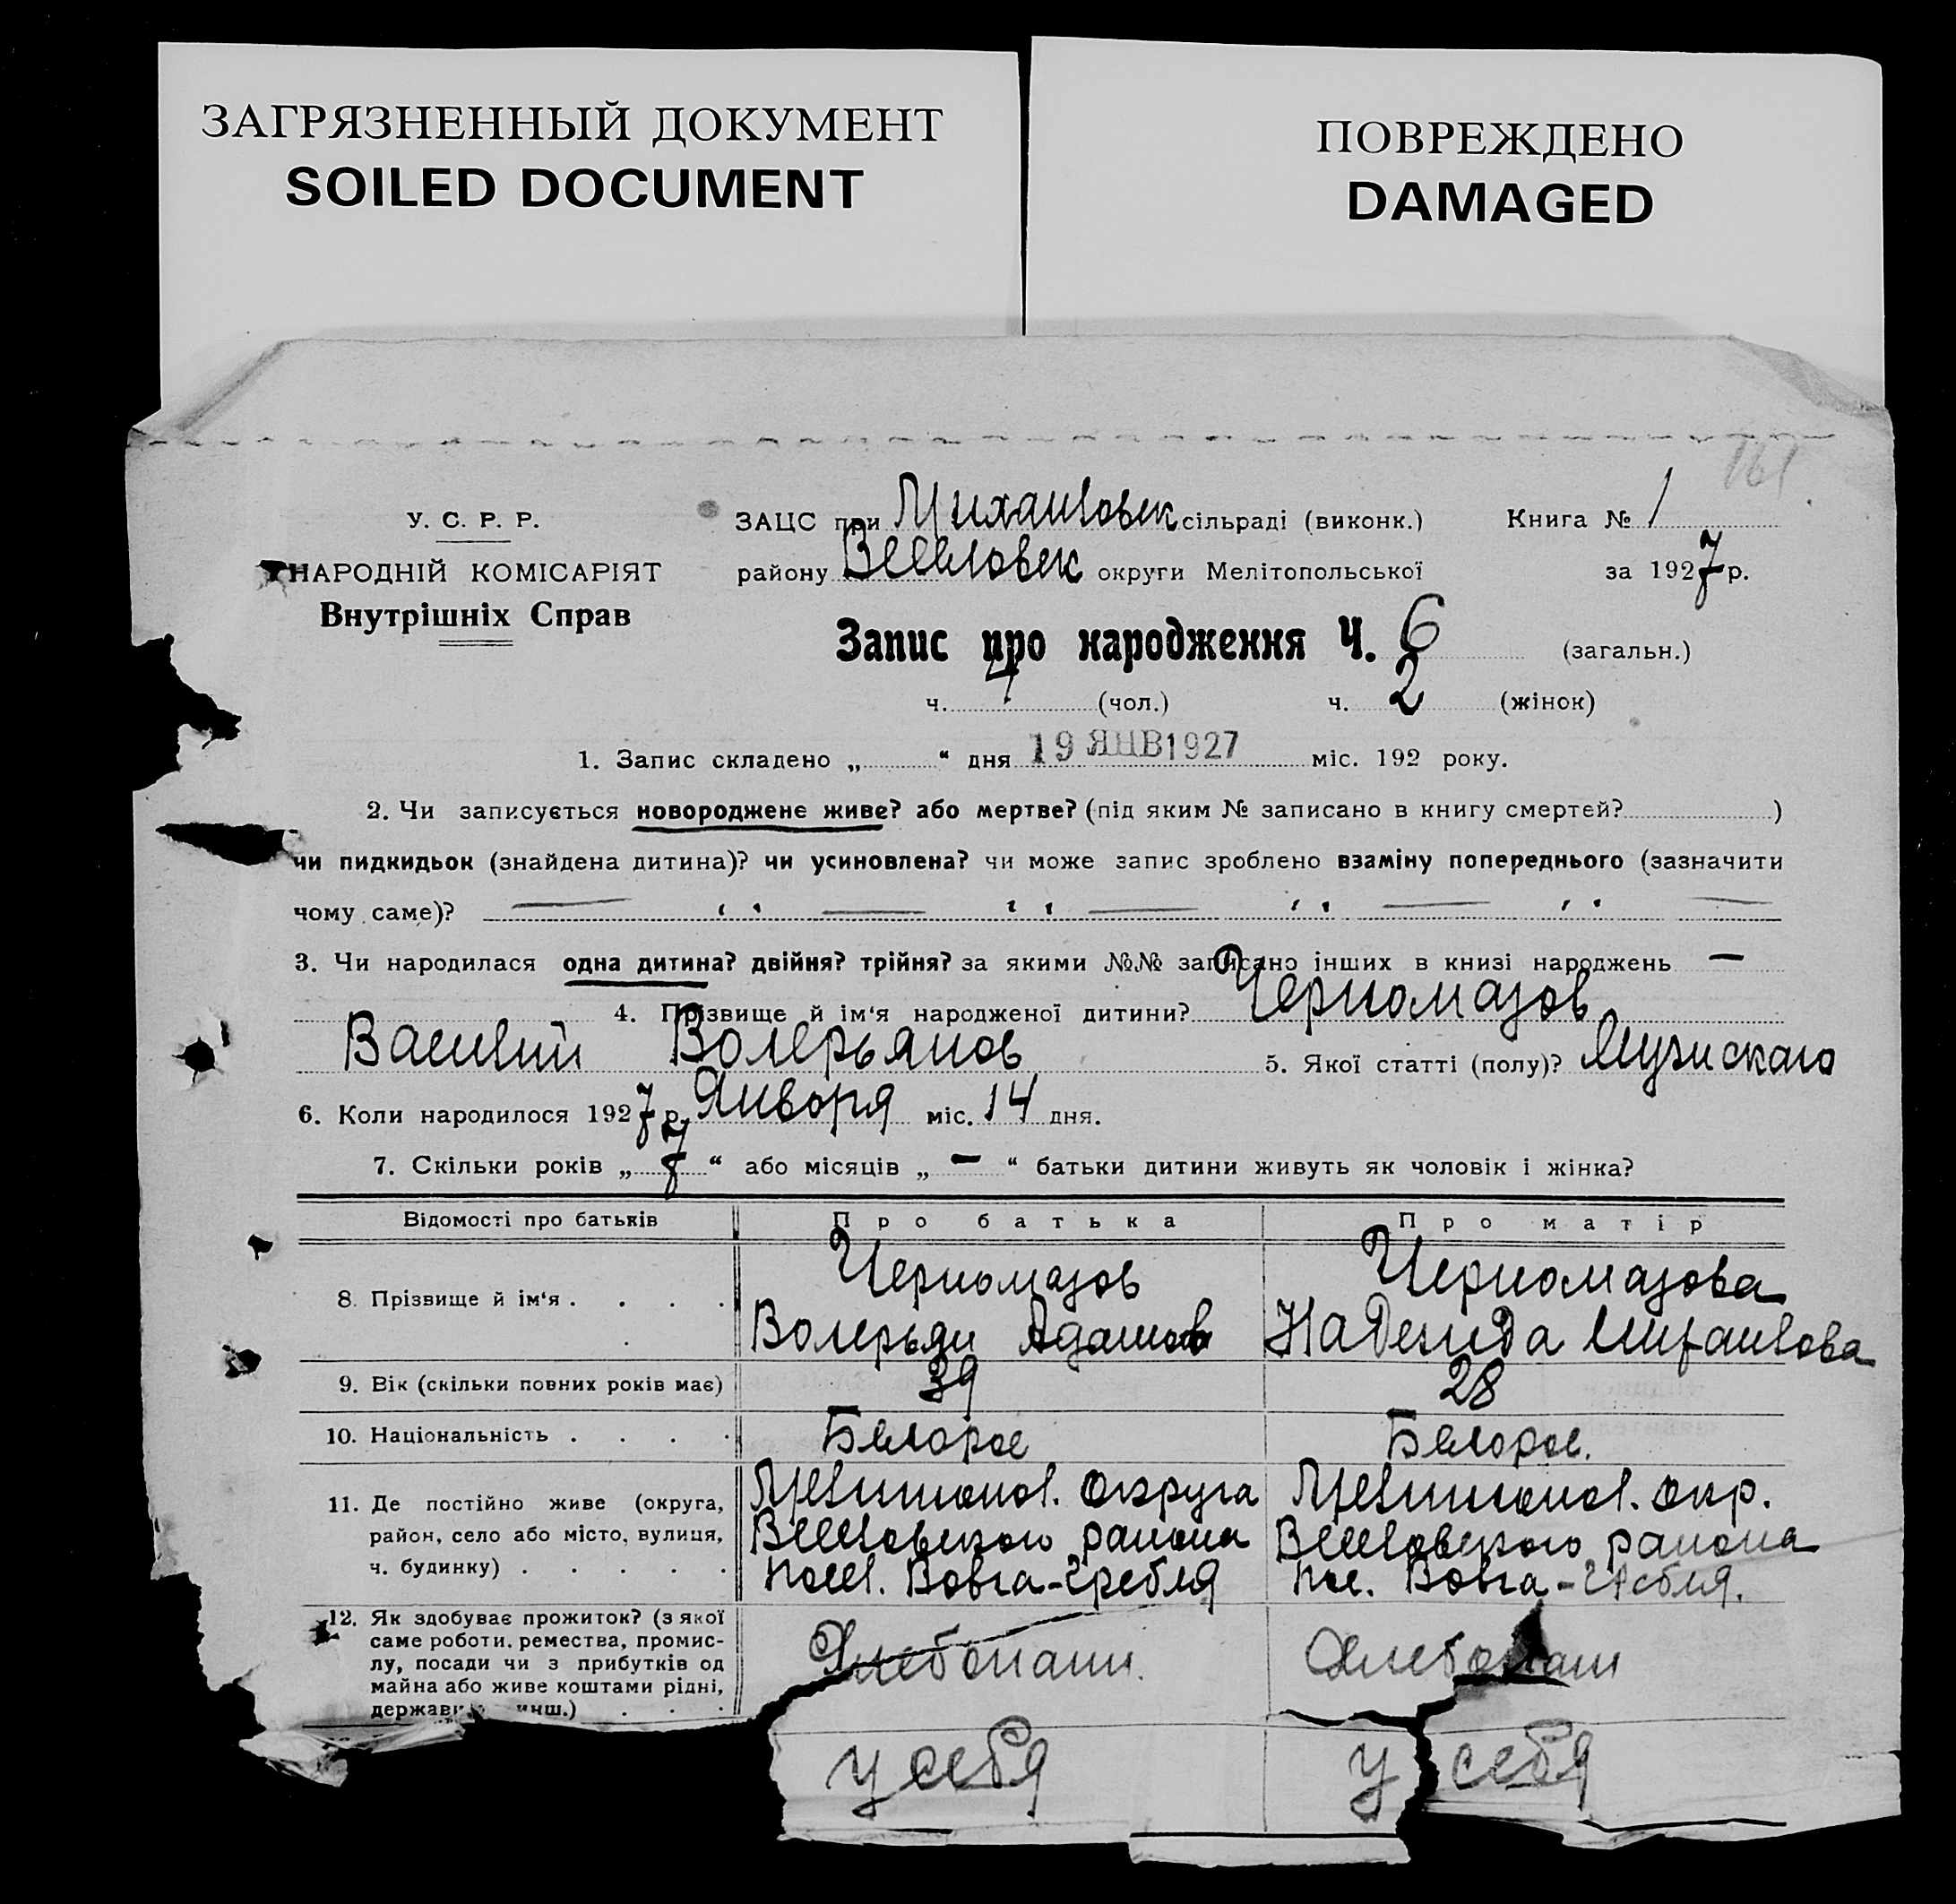 ЗАГРЯЗНЕННЫЙ ДОКУМЕНТ
SOILED DOCUMENT
ПОВРЕЖДЕНО
DAMAGED
161
У. С. Р. Р.
НАРОДНІЙ КОМІСАРІЯТ
Внутрішніх Справ
ЗАЦС при Михайловск сільраді (виконк.) Книга № 1
району Веселовск округи Мелітопольської за 1927 р.
Запис про народження Ч. 6 (загальн.)
ч. 4 (чол.) ч. 2 (жінок)
1. Запис складено „ “ дня 19 ЯНВ 1927 міс. 192 року.
2. Чи записується новороджене живе? або мертве? (під яким № записано в книгу смертей? )
чи пидкидьок (знайдена дитина)? чи усиновлена? чи може запис зроблено взаміну попереднього (зазначити
чому саме)? — „ — „ — „ — „ —
3. Чи народилася одна дитина? двійня? трійня? за якими №№ записано інших в книзі народжень —
4. Прізвище й ім‘я народженої дитини? Черномазов
Василий Волерьянов 5. Якої статті (полу)? Мужскаго
6. Коли народилося 1927 р. Января міс. 14 дня.
7. Скільки років „ 7 “ або місяців „ — “ батьки дитини живуть як чоловік і жінка?
Відомості про батьків Про батька Про матір
8. Прізвище й ім‘я . . . . Черномазов Черномазова
Волерьян Адамов Надежда
9. Вік (скільки повних років має) 39 28
10. Національність . . . . Белорос Белорос.
11. Де постійно живе (округа, Мелитопол. округа Мелитопол. окр.
район, село або місто, вулиця, Веселовского района Веселовского района
ч. будинку) . . . . . посел. Вовга-гребля пос. Вовга-гребля.
12. Як здобуває прожиток? (з якої
саме роботи, ремества, промис-
лу, посади чи з прибутків од Хлебопаш. Хлебопаш
майна або живе коштами рідні,
держави инш.) . . .
у себя у себя